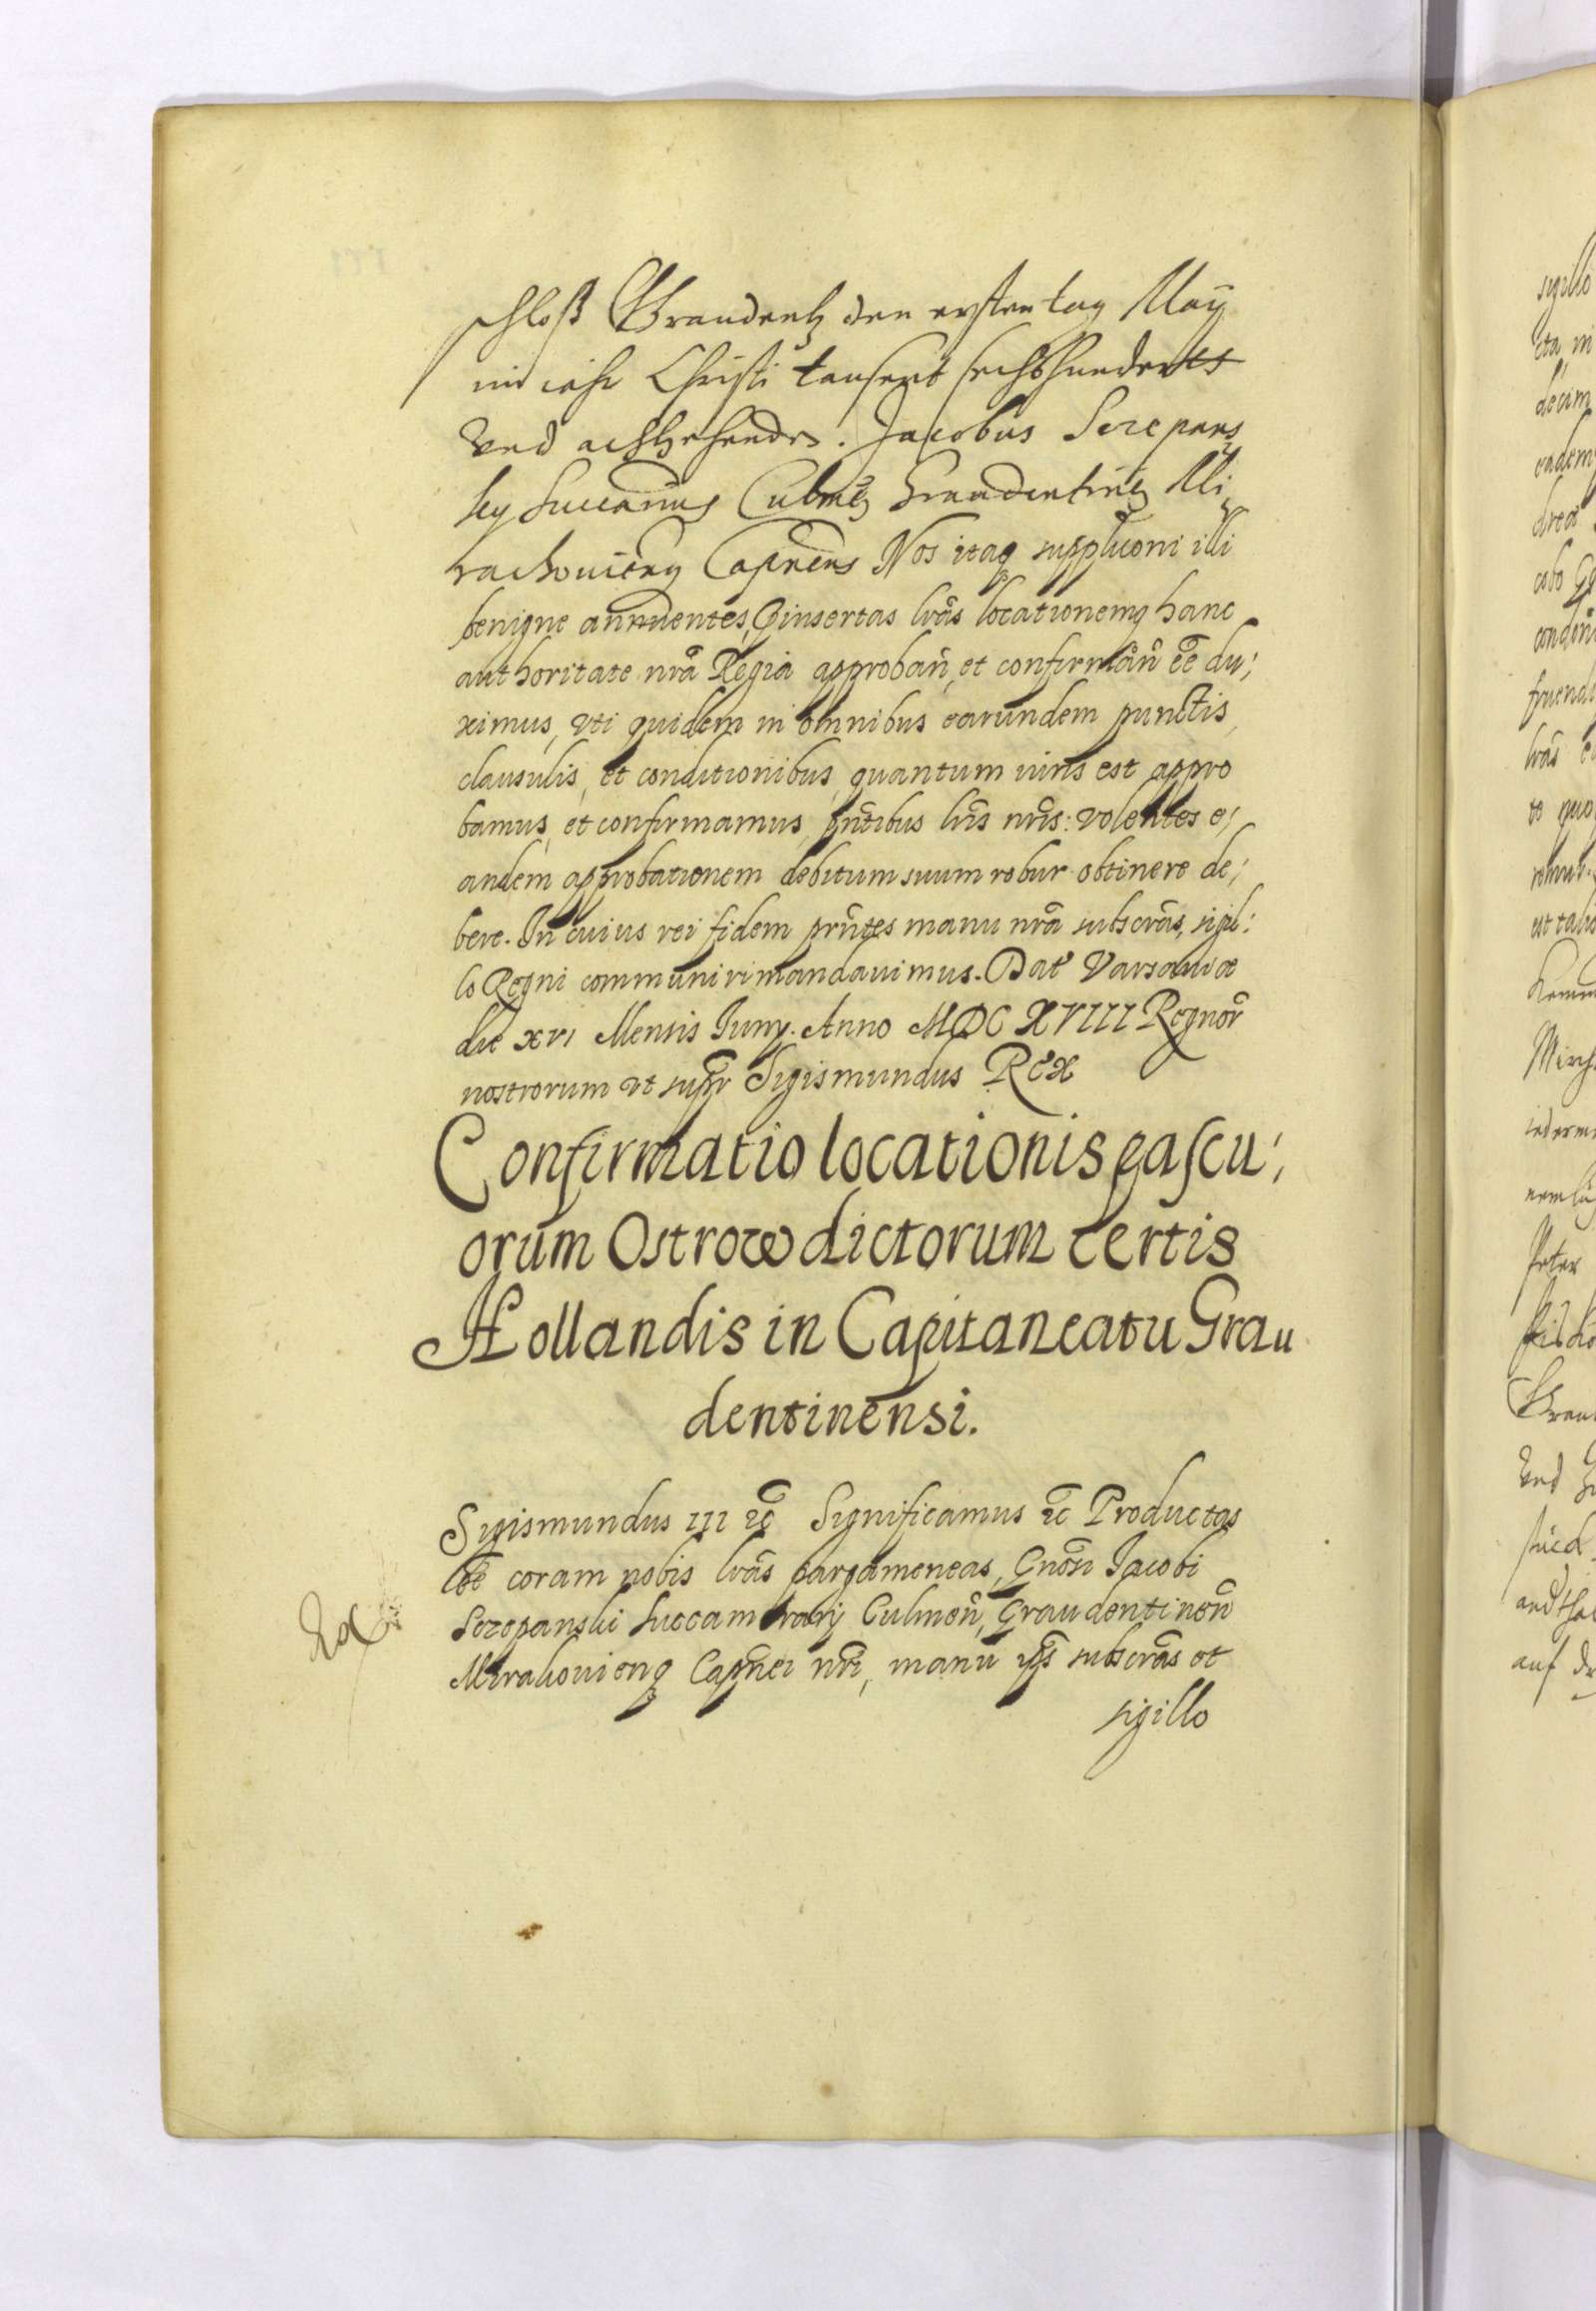 schloß Graudentz den ersten tag May
im iahr Christi tausent sechshunderts
Vnd achtzehends. Jacobus Sczepans
ky Succarius Culmen Graudentinen Mi
rachouienq Capneus Nos itaq suppliconi illi
benigne annuentes, pinsertas lras locationemq hanc
authoritate nra Regia approban, et confirman ee du;
ximus, vti quidem in omnibus earundem punctis,
clausulis, et conditionibus, quantum iuris est appro
bamus, et confirmamus, pntibus lris nris: volentes e;
andem approbationem debitum suum robur obtinere de;
bere. In cuius rei fidem prntes manu nra subscras, sigil:
lo Regni communiri mandauimus. Dat Varsauiæ
die XVI Mensis Iuny. Anno MDC XVIII Regnor
nostrorum vt supr Sigismundus REX
Confirmatio locationis pascu;
orum Ostrow dictorum certis
Hollandis in Capitaneatu Grau
dentinensi.
Sigismundus III etc Significamus etc Productas
ee coram nobis lras pargameneas, Gnosi Iacobi
Sczepanski Succamerarij Culmen, Graudentinen
Mirahouienq Capnei nri, manu ips subscras et
sigillo